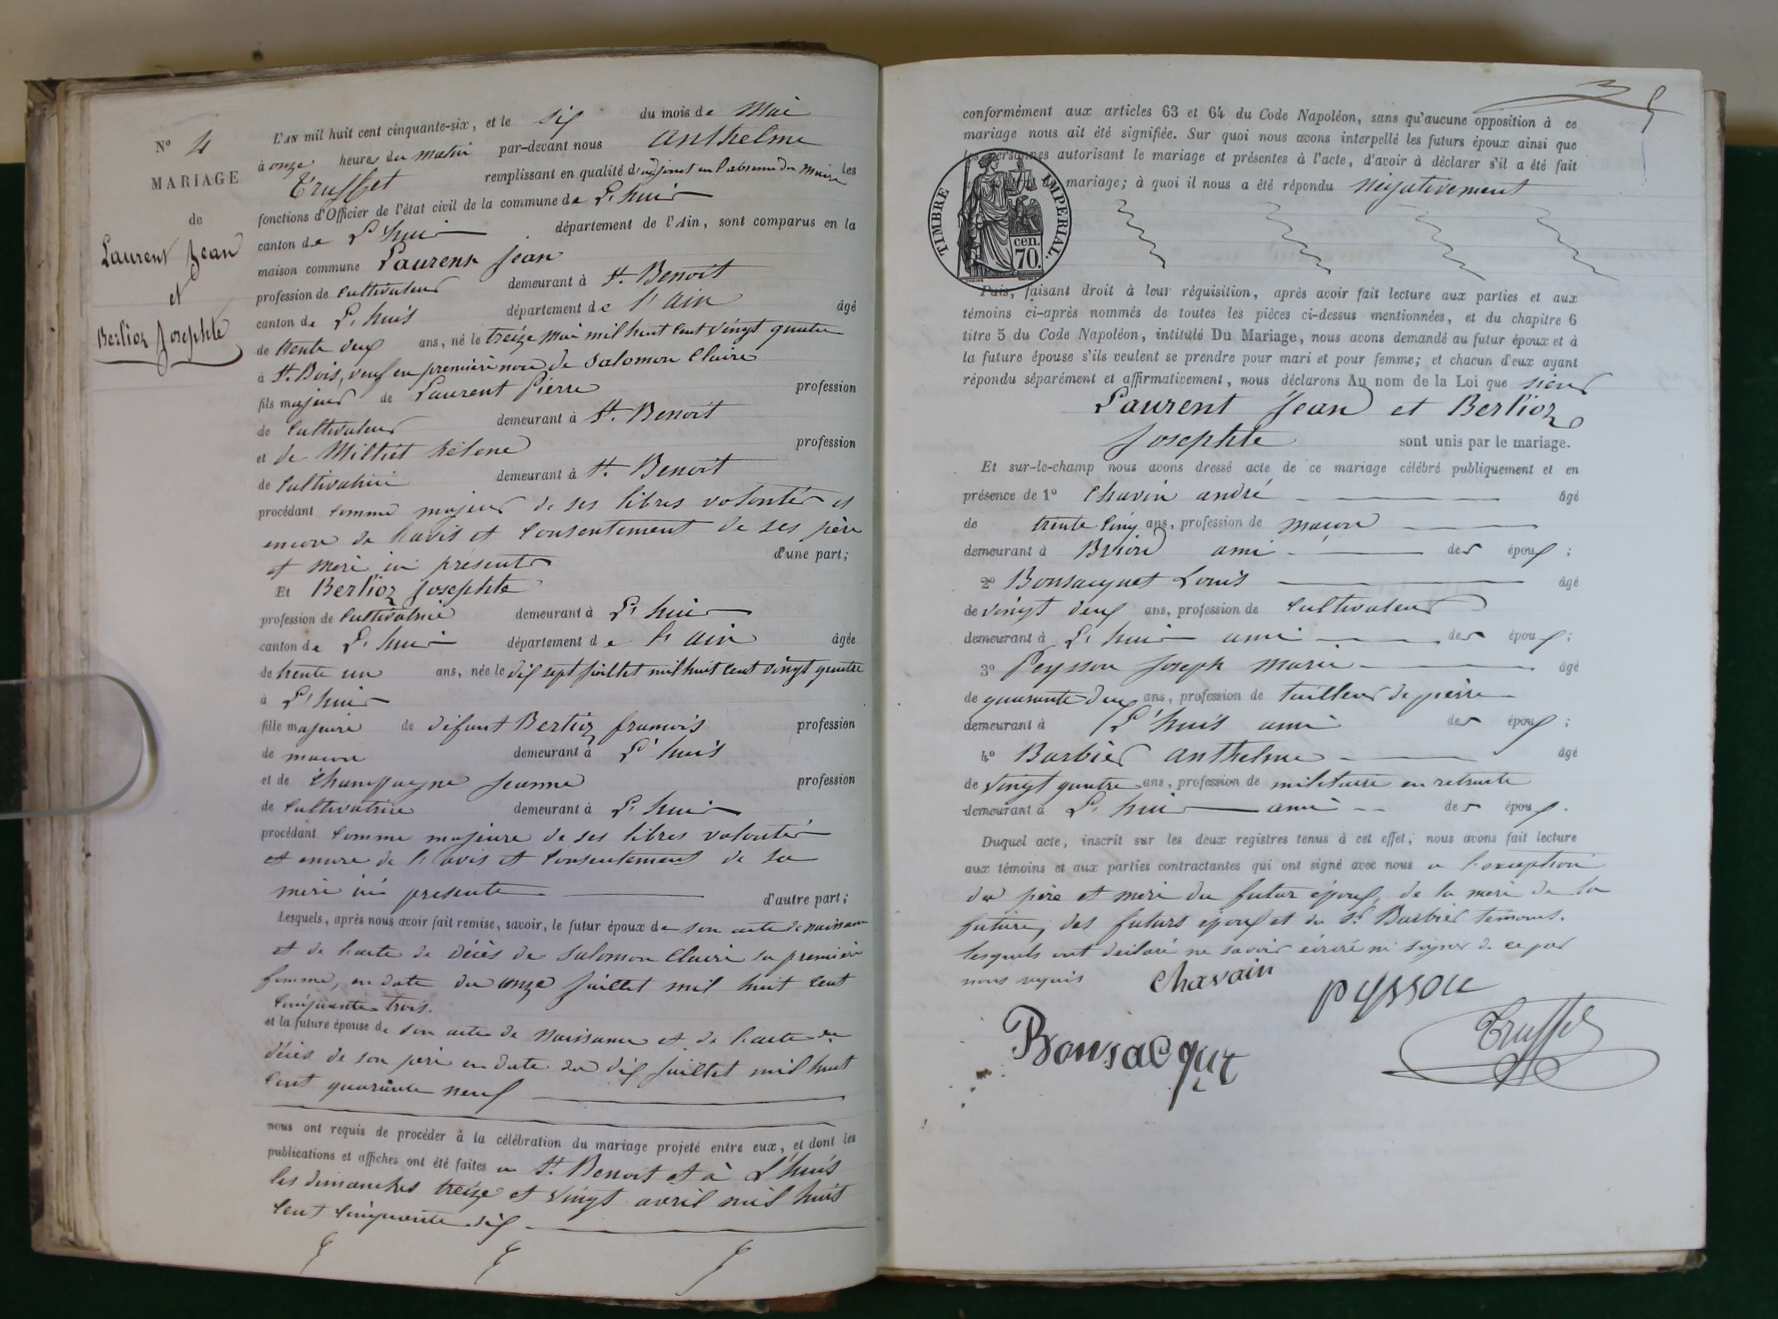 N° 4
MARIAGE
de
Laurent Jean
et
Berlioz Josephte
L'AN mil huit cent cinquante-six, et le six du mois de Mai
à onze heures du matin par-devant nous Anthelme
Truffet remplissant en qualité d'adjoint en l'absence du Maire les
fonctions d'Officier de l'état civil de la commune de L'huis
canton de L'huis département de l'Ain, sont comparus en la
maison commune Laurent Jean
profession de Cultivateur demeurant à St. Benoit
canton de L'huis département de l'ain âgé
de trente deux ans, né le treize Mai mil huit cent vingt quatre
à St. Bois, veuf en première noce de Salomon Claire
fils majeur de Laurent Pierre profession
de Cultivateur demeurant à St. Benoit
et de Milliet hélène profession
de Cultivatrice demeurant à St. Benoit
procédant comme majeur de ses libres volontés et
encore de l'avis et consentement de ses père
et mère ici présents d'une part;
Et Berlioz Josephte
profession de Cultivatrice demeurant à L'huis
canton de L'huis département de l'ain âgée
de trente un ans, née le dix sept juillet mil huit cent vingt quatre
à L'huis
fille majeure de défunt Berlioz françois profession
de macon demeurant à L'huis
et de Jeanne profession
de Cultivatrice demeurant à L'huis
procédant comme majeure de ses libres volontés
et encore de l'avis et consentement de sa
mère ici présente d'autre part;
Lesquels, après nous avoir fait remise, savoir, le futur époux de son acte de naissance
et de l'acte de décès de Salomon Claire sa première
femme, en date du onze juillet mil huit cent
cinquante trois.
et la future épouse de son acte de Naissance et de l'acte de
décès de son père en date du dix juillet mil huit
cent quarante neuf
nous ont requis de procéder à la célébration du mariage projeté entre eux, et dont les
publications et affiches ont été faites a St. Benoit et à L'huis
les dimanches treize et vingt avril mil huit
cent cinquante six
conformément aux articles 63 et 64 du Code Napoléon, sans qu'aucune opposition à ce
mariage nous ait été signifiée. Sur quoi nous avons interpellé les futurs époux ainsi que
les personnes autorisant le mariage et présentes à l'acte, d'avoir à déclarer s'il a été fait
de mariage; à quoi il nous a été répondu négativement
TIMBRE IMPERIAL.
cen.
70.
Puis, faisant droit à leur réquisition, après avoir fait lecture aux parties et aux
témoins ci-après nommés de toutes les pièces ci-dessus mentionnées, et du chapitre 6
titre 5 du Code Napoléon, intitulé Du Mariage, nous avons demandé au futur époux et à
la future épouse s'ils veulent se prendre pour mari et pour femme; et chacun d'eux ayant
répondu séparément et affirmativement, nous déclarons Au nom de la Loi que sieur
Laurent Jean et Berlioz
Josephte sont unis par le mariage.
Et sur-le-champ nous avons dressé acte de ce mariage célébré publiquement et en
présence de 1° Chavin andré âgé
de trente cinq ans, profession de macon
demeurant à Briord ami des époux;
2° Bonsacquet Louis âgé
de vingt deux ans, profession de Cultivateur
demeurant à L'huis ami des époux;
3° Peysson Joseph Marie âgé
de quarante deux ans, profession de tailleur de pierre
demeurant à L'huis ami des époux;
4° Barbier Anthelme âgé
de vingt quatre ans, profession de militaire en retraite
demeurant à L'huis ami des époux.
Duquel acte, inscrit sur les deux registres tenus à cet effet, nous avons fait lecture
aux témoins et aux parties contractantes qui ont signé avec nous a l'exception
du père et mère du futur époux, de la mère de la
future, des futurs époux et du Sr. Barbier témoins.
lesquels ont déclaré ne savoir écrire ni signer de ce par
nous requis
Chavain
pEysson
Bonsacquet
Truffet